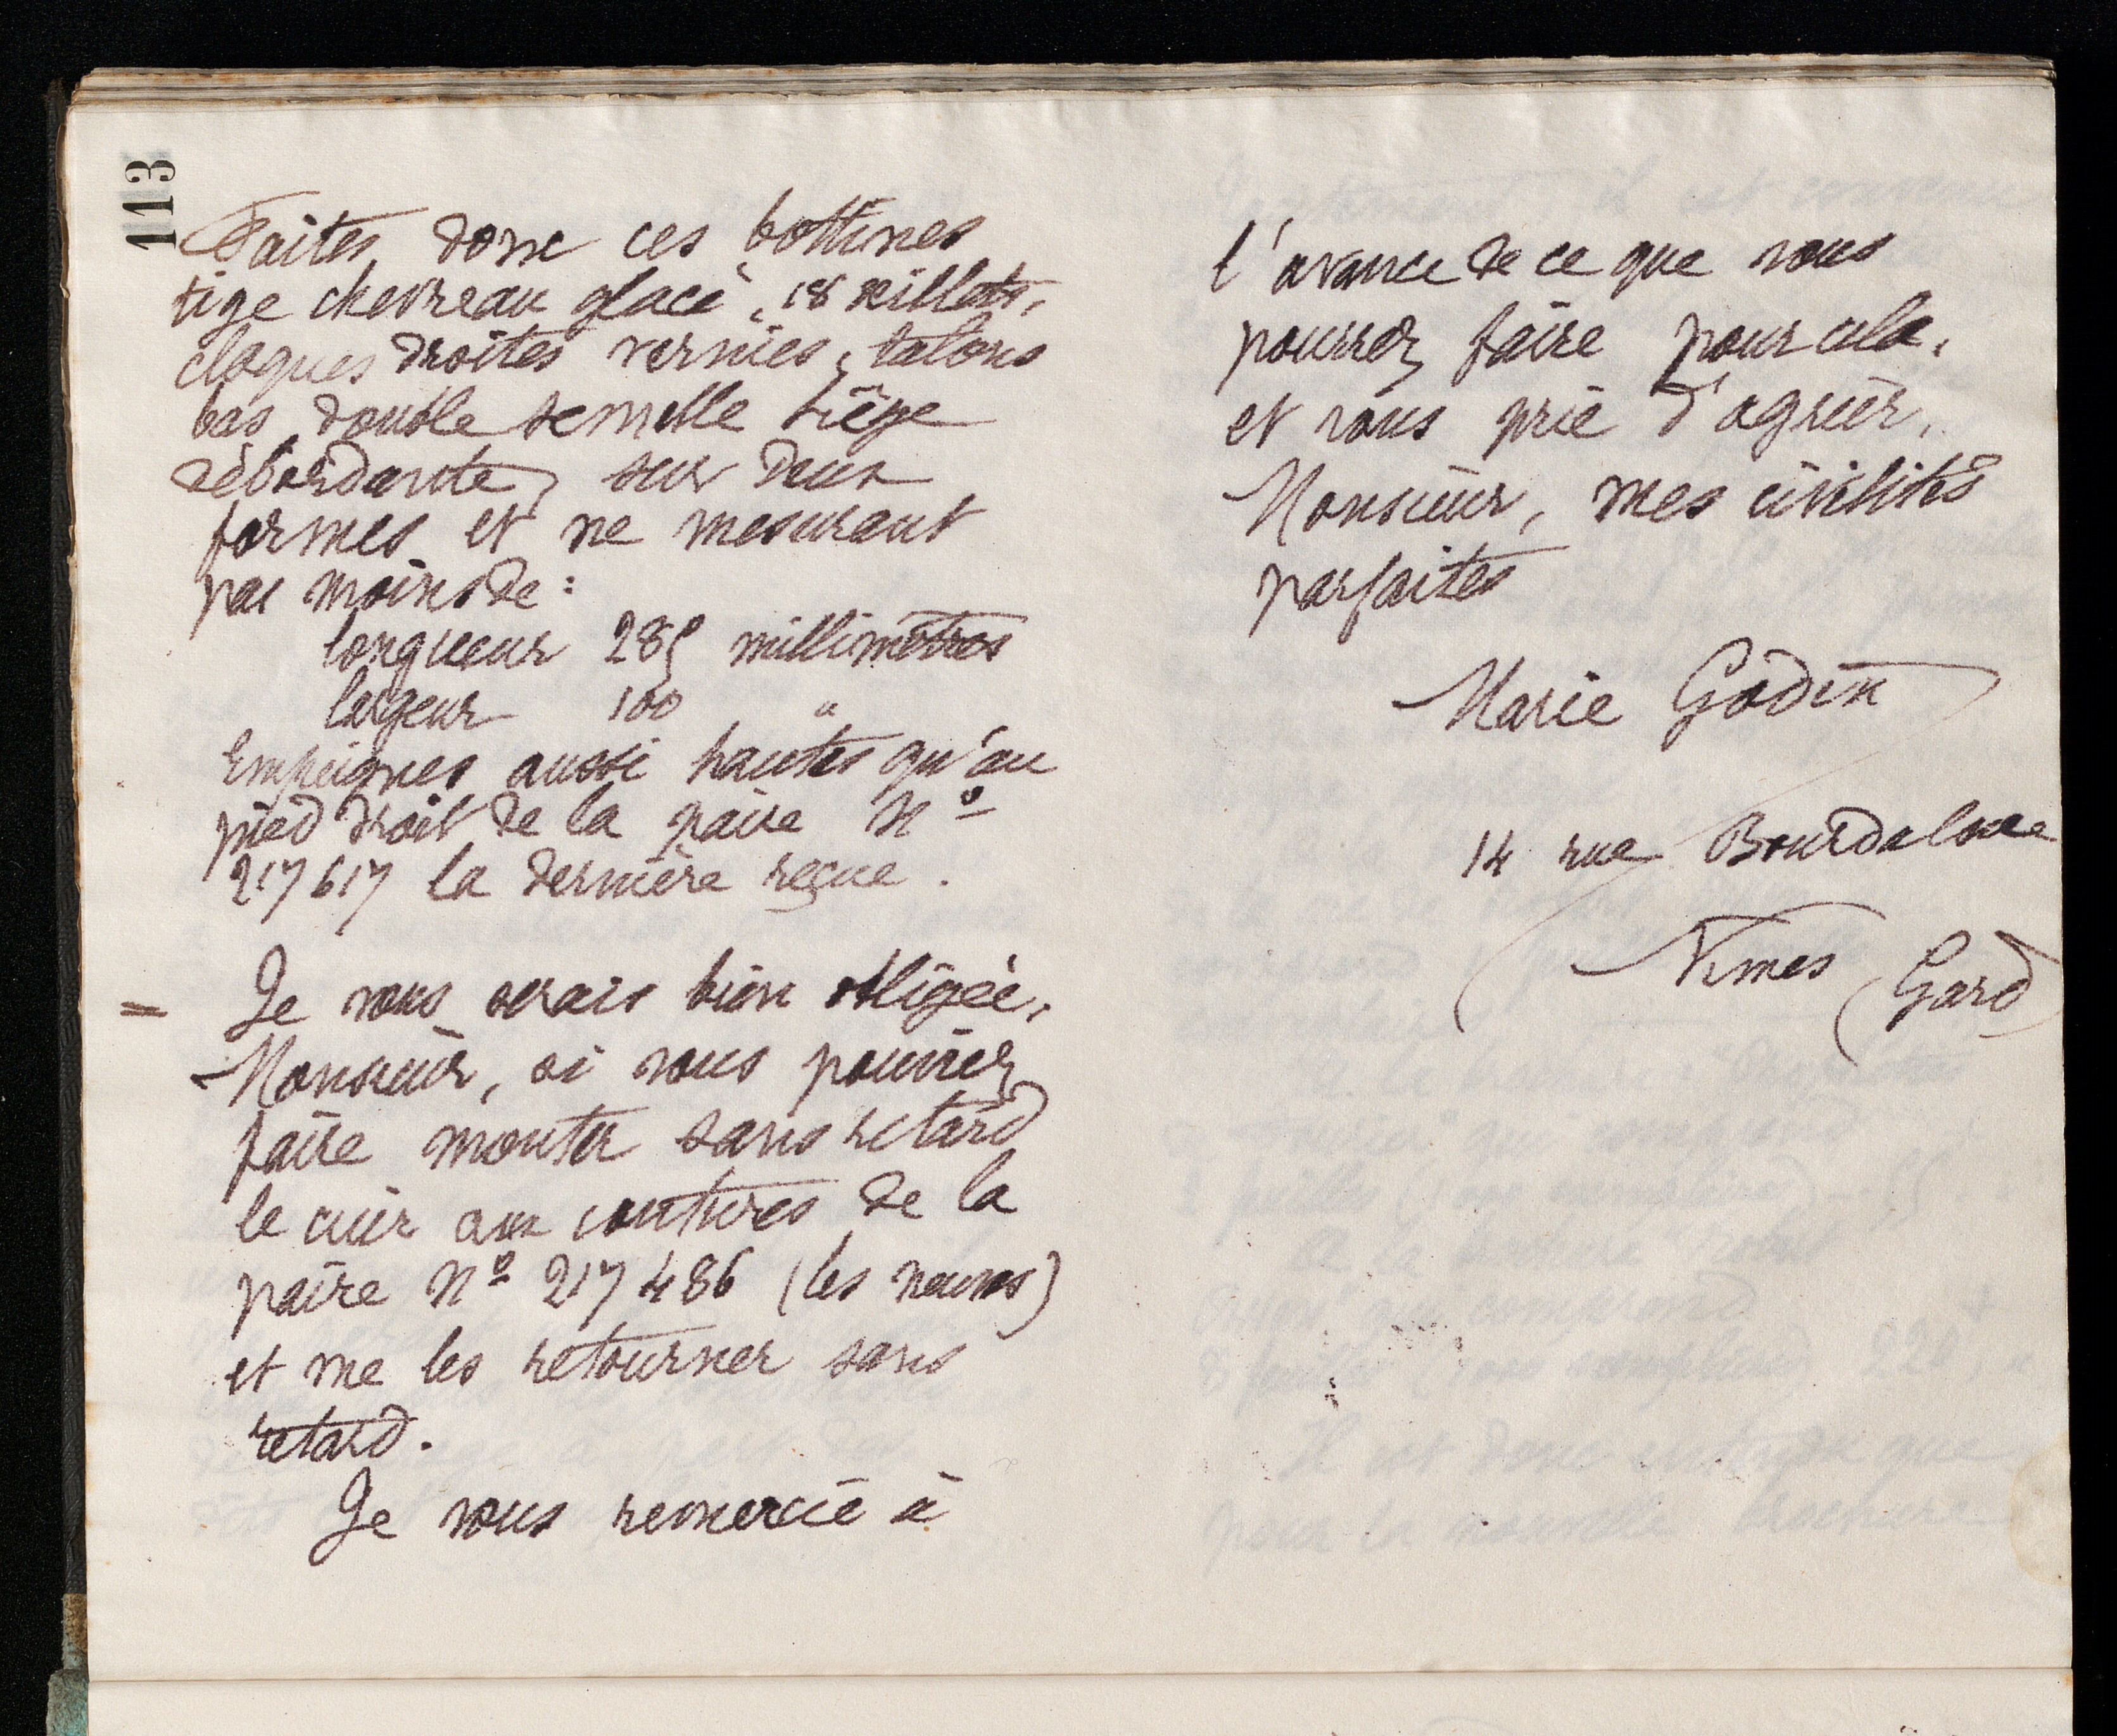 113
Faites donc ces bottines
tige chevreau glacé, 18 œillets,
claques droites vernies, talons
bas, double semelle liège
débordante, sur deux
formes et ne mesurant
pas moins de :
longueur 285 millimètres
largeur 100 "
Empeignes aussi hautes qu'au
pied droit de la paire Nº
217617 la dernière reçue.
= Je vous serais bien obligée,
Monsieur, si vous pouviez
faire monter sans retard
le cuir aux coutures de la
paire Nº 217486 (les neuves)
et me les retourner sans
retard.
Je vous remercie à
l'avance de ce que vous
pourrez faire pour cela,
et vous prie d'agréer,
Monsieur, mes civilités
parfaites
Marie Godin
14 rue Bourdaloue
Nîmes (Gard)